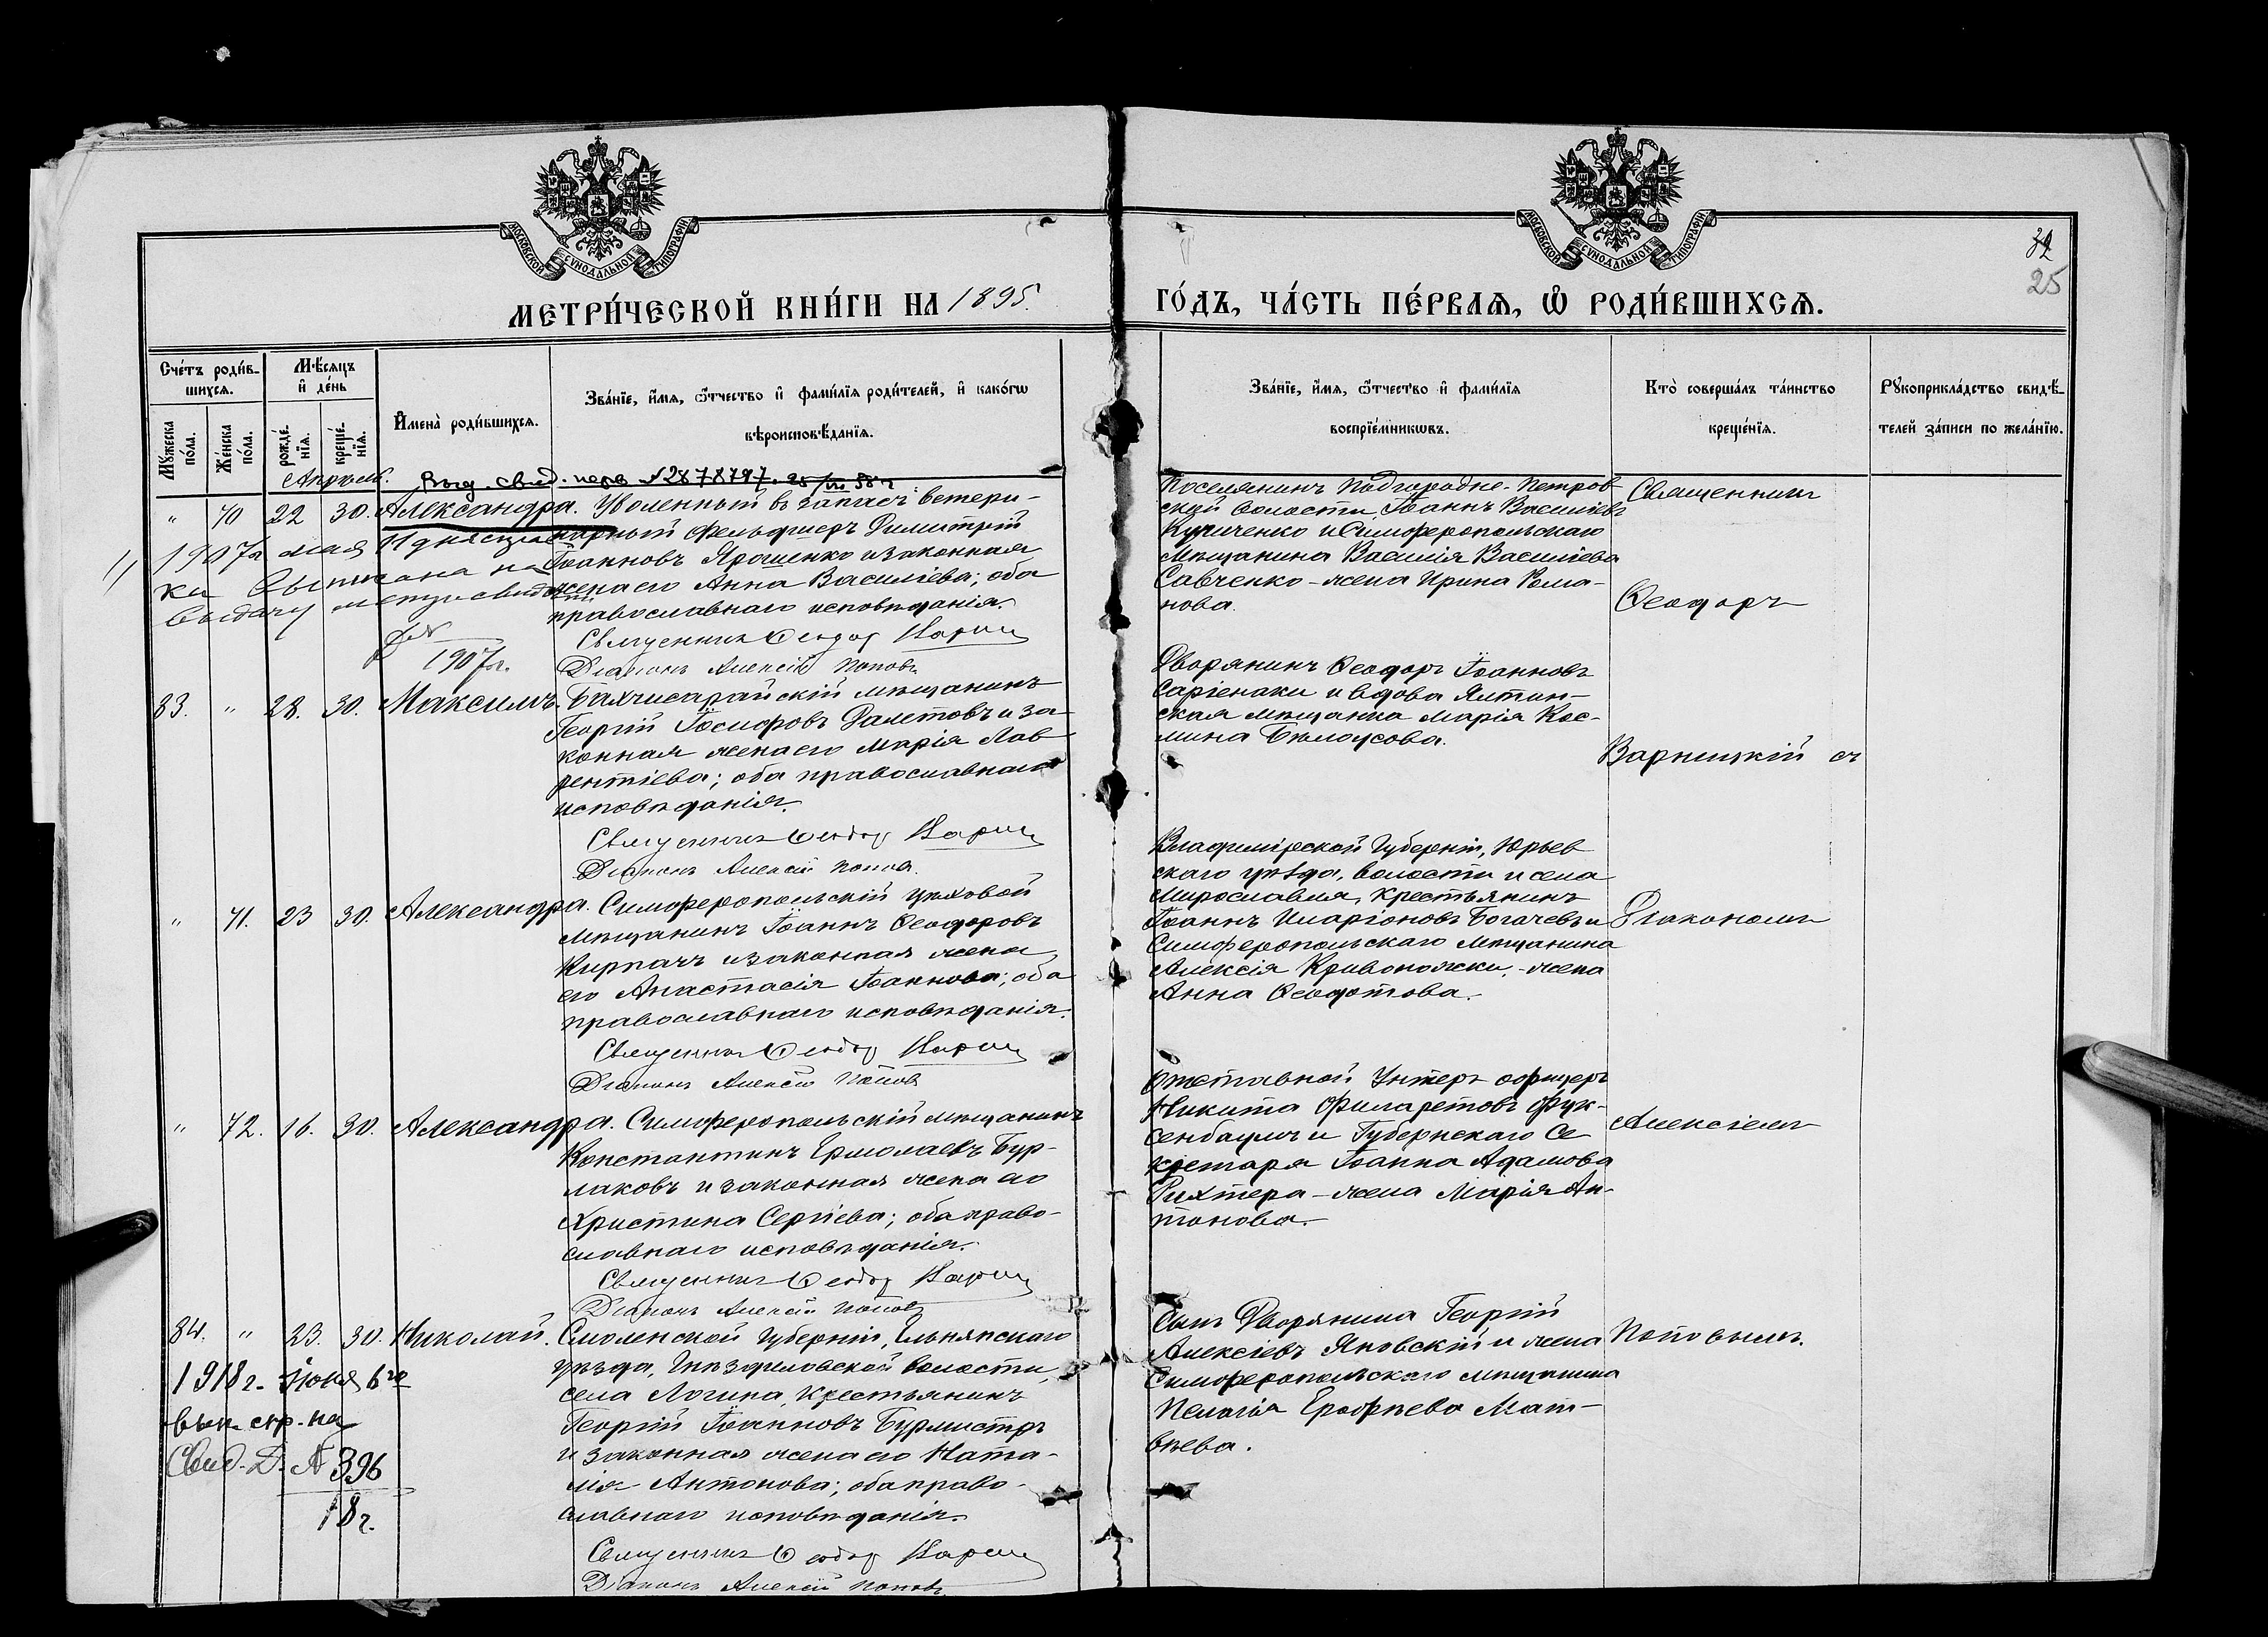 МОСКОВСКОЙ СѴНОДАЛЬНОЙ ТИПОГРАФІИ
МОСКОВСКОЙ СѴНОДАЛЬНОЙ ТИПОГРАФІИ
25
МЕТРИ́ЧЕСКОЙ КНИ́ГИ НА 1895.
ГО́ДЪ, ЧА́СТЬ ПЕ́РВАѦ, Ѽ РОДИ́ВШИХСѦ.
Сче́тъ роди́в-
шихсѧ.
Мꙋжеска по́ла.
Же́нска по́ла.
Мѣ́сѧцъ и҆ де́нь
рожде́нїѧ.
креще́нїѧ.
И҆мена̀ роди́вшихсѧ.
Зва́нїе, и҆́мѧ, ѻ҆́тчество и҆ фами́лїѧ роди́телей, и҆ како́гѡ
вѣроисповѣ́данїѧ.
Зва́нїе, и҆́мѧ, ѻ҆́тчество и҆ фами́лїѧ
воспрїе́мникѡвъ.
Кто̀ соверша́лъ та́инство
креще́нїѧ.
Рꙋкоприкла́дство свидѣ́-
телей за́писи по жела́нїю.
Апрѣль.
Выд. свид. 2878797.
" 70 22 30. Александра. Уволенный въ запасъ ветери-
нарный фельдшеръ Димитрій
Іоанновъ Ярошенко и законная
жена его Анна Васильева; оба
православнаго исповѣданія.
Священникъ Ѳеодоръ
Діаконъ Алексій Поповъ
1907г. мая 11 дня
ка выписана на
выдачу метр. свид.
1907г.
Поселянинъ Подгородне-Петров
ской волости Іоаннъ Васильевъ
Куличенко и Симферопольскаго
мѣщанина Василія Васильева
Савченко - жена Ирина Рома-
нова.
Священникъ
Ѳеодоръ
83. " 28. 30. Максимъ. Бахчисарайскій мѣщанинъ
Георгій Іосифовъ Далетовъ и за-
конная жена его Марія Лав-
рентіева; оба православнаго
исповѣданія.
Священникъ Ѳеодоръ
Діаконъ Алексій Поповъ.
Дворянинъ Ѳеодоръ Іоанновъ
Саріенаки и вдова Ялтин-
ская мѣщанка Марія Кос-
мина Бѣлоусова.
Варницкій съ
" 71. 23 30. Александра. Симферопольскій цеховой
мѣщанинъ Іоаннъ Ѳеодоровъ
Кирпачъ и законная жена
его Анастасія Іоаннова; оба
православнаго исповѣданія.
Священникъ Ѳеодоръ
Діаконъ Алексій Поповъ
Владимірской Губерніи, Юрьев
скаго уѣзда, волости и села
Мирославля, крестьянинъ
Іоаннъ Иларіоновъ Богачевъ и
Симферопольскаго мѣщанина
Алексія Кривоножки, - жена
Анна Ѳеодотова.
Діакономъ
" 72. 16. 30. Александра. Симферопольскій мѣщанинъ
Константинъ Ермолаевъ Бур-
лаковъ и законная жена его
Христина Сергіева; оба право-
славнаго исповѣданія.
Священникъ Ѳеодоръ
Діаконъ Алексій Поповъ
Отставной Унтеръ офицеръ
Никита Филаретовъ Фук-
сенбаумъ и Губернскаго Се
кретаря Іоанна Адамова
Рихтера - жена Марія Ан-
тонова.
Алексіемъ
84. " 23. 30. Николай. Смоленской Губерніи, Ельнинскаго
уѣзда, Гнѣздиловской волости,
села Логина, крестьянинъ
Георгій Іоанновъ Бурмистръ
и законная жена его Ната-
лія Антонова; оба право-
славнаго исповѣданія.
Священникъ Ѳеодоръ
Діаконъ Алексій Поповъ.
1918г. Іюня 6го
вып. стр. на
Свид. Д. № 396
18г.
Сынъ Дворянина Георгій
Алексіевъ Яновскій и жена
Симферопольскаго мѣщанина
Пелагія Ерофѣева Мат-
вѣева.
Поповымъ.